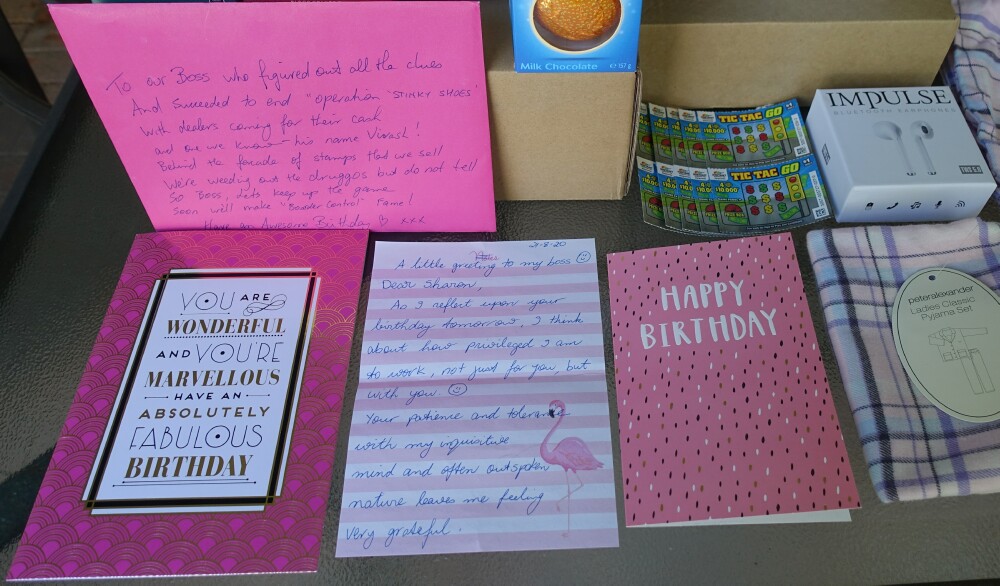 To our Boss who figured out all the clues
And succeeded to end "operation 'STINKY SHOES'
with dealers coming for their cash
and one we know his name Vivash!
Behind the facade of stamps that we sell
We're weeding out the druggos but do not tell
So Boss, lets keep up the game
Soon we'll make "Boarder Control" Fame!
Have an Awesome Birthday xxx
Milk Chocolate e 57g
TIC TAC GO
TIC TAC GO
IMPULSE
BLUETOOTH EARPHONES
YOU ARE
WONDERFUL
AND YOU'RE
MARVELLOUS
HAVE AN
ABSOLUTELY
FABULOUS
BIRTHDAY
21-8-20
A little greeting to my boss
Dear Sharon,
As I reflect upon your
birthday tomorrow, I think
about how privileged I am
to work, not just for you, but
with you.
Your patience and tolerance
with my inquisitive
mind and often outspoken
nature leaves me feeling
very grateful.
HAPPY
BIRTHDAY
peteralexander
Ladies Classic
Pyjama Set